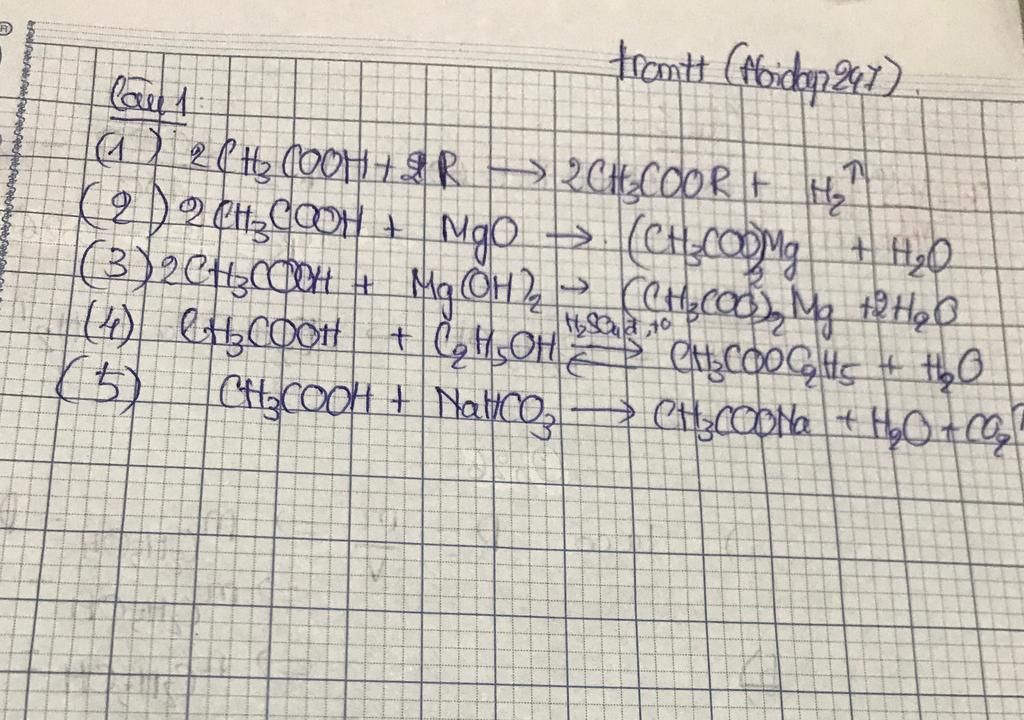 tramtt (Hoidap247).
Câu 1:
(1) 2CH₃COOH + 2R → 2CH₃COOR + H₂↑
(2) 2CH₃COOH + MgO → (CH₃COO)₂Mg + H₂O
(3) 2CH₃COOH + Mg(OH)₂ → (CH₃COO)₂Mg + 2H₂O
(4) CH₃COOH + C₂H₅OH ⇌ CH₃COOC₂H₅ + H₂O
(5) CH₃COOH + NaHCO₃ → CH₃COONa + H₂O + CO₂↑